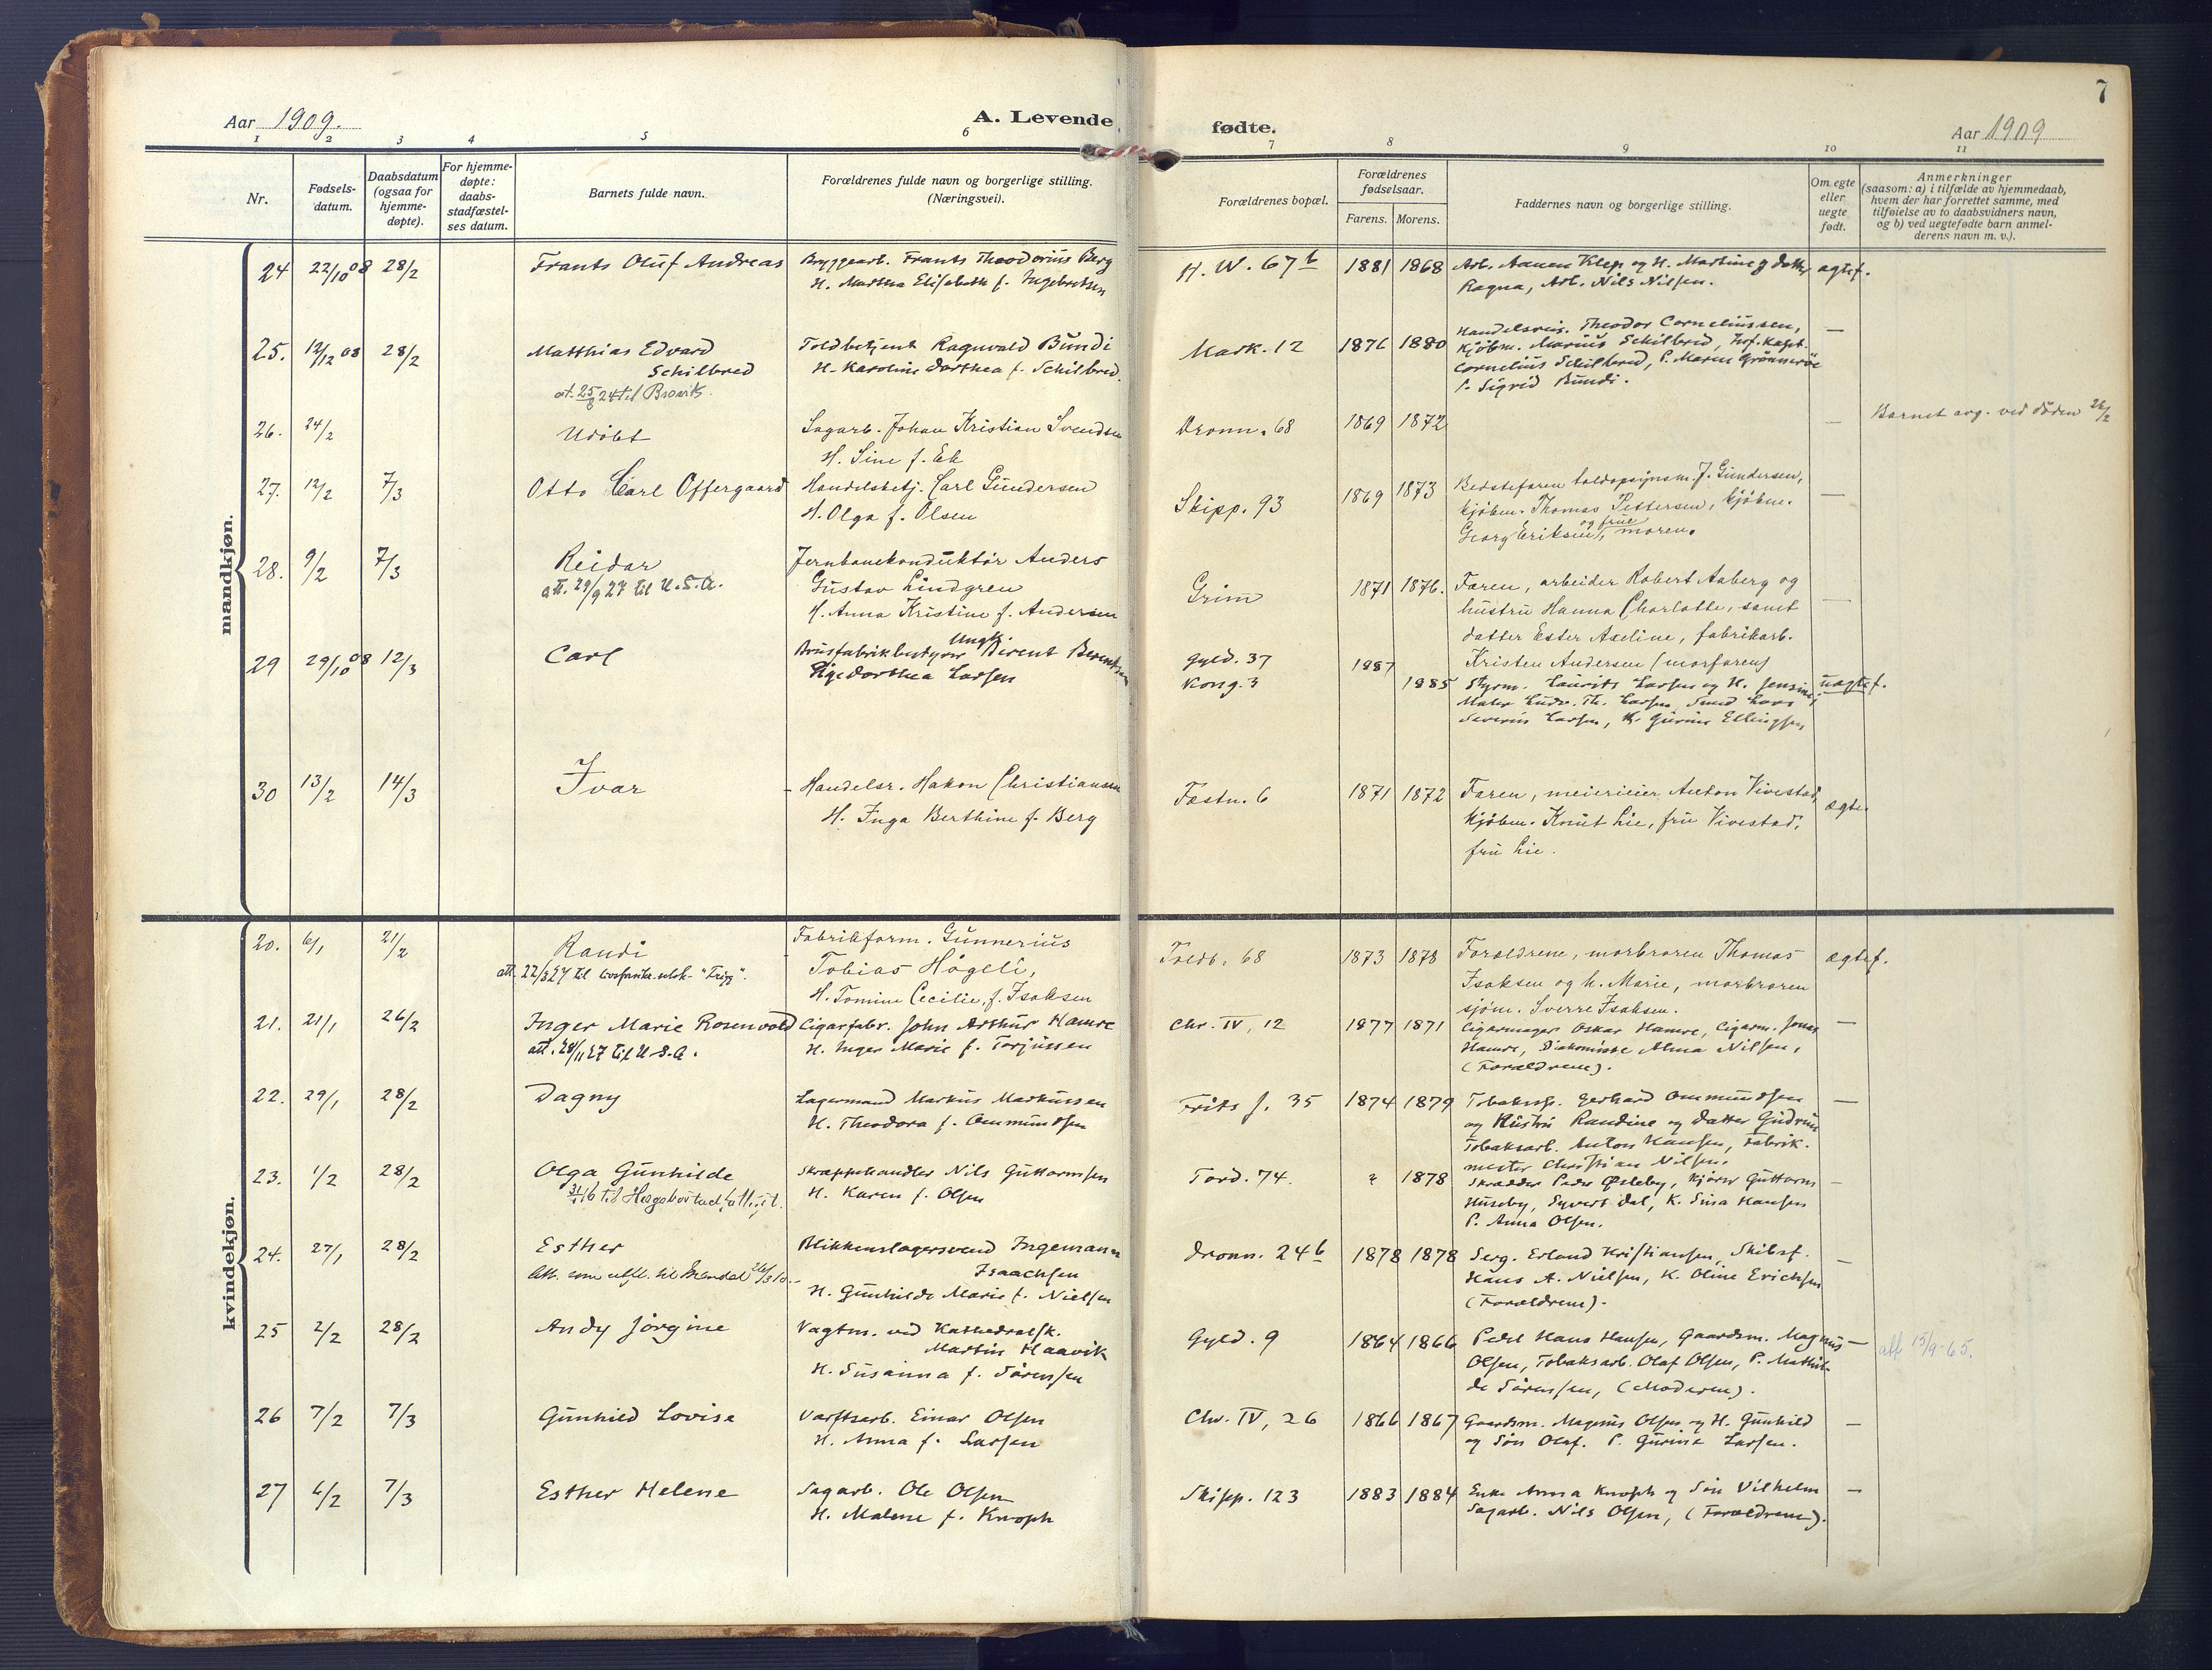 7
Aar 1909.
A. Levende
fødte.
Aar 1909
1 2 3 4 5 6 7 8 9 10 11
Nr.
Fødsels-
datum.
Daabsdatum
(ogsaa for
hjemme-
døpte).
For hjemme-
døpte:
daabs-
stadfæstel-
ses datum.
Barnets fulde navn.
Forældrenes fulde navn og borgerlige stilling.
(Næringsvei).
Forældrenes bopæl.
Forældrenes
fødselsaar.
Farens. Morens.
Faddernes navn og borgerlige stilling.
Om egte
eller
uegte
født.
Anmerkninger
(saasom: a) i tilfælde av hjemmedaab,
hvem der har forrettet samme, med
tilføielse av to daabsvidners navn,
og b) ved uegtefødte barn anmel-
derens navn m. v.).
mandkjøn.
24 22/10 08 28/2 Frants Oluf Andreas Bryggearb. Frants Theodorius Berg H. W. 67 b 1881 1868 Arb. Aanen Klep og H. Martine og datter ægtef.
H. Martha Elisabeth f. Ingebretsen Ragna, Arb. Nils Nilsen.
25. 12/12 08 28/2 Matthias Edvard Toldbetjent Ragnvald Bundi Mark. 12 1876 1880 Handelsreis. Theodor Corneliussen, —
Schilbred H. Karoline Dorthea f. Schilbred. Kjøbm. Marius Schilbred,
at. 25/8 24 til Cornelius Schilbred, P. Maren Grønnerøe
P. Sigrid Bundi.
26. 24/2 Udøbt Sagarb. Johan Kristian Svendsen Dronn. 68 1869 1872 — Barnet avg. ved døden 26/2
H. Sine f. Ek
27. 12/2 7/3 Otto Carl Offergaard Handelsbetj. Carl Gundersen Skipp. 93 1869 1873 Bedstefaren toldopsynsm. J. Gundersen, —
H. Olga f. Olsen kjøbm. Thomas Pettersen, kjøbm.
Georg Eriksen og frue, moren.
28. 9/2 7/3 Reidar Jernbanekonduktør Anders Grim 1871 1876. Faren, arbeider Robert Aaberg og —
att. 29/9 27 til U.S.A. Gustav Lindgren hustru Hanna Charlotte, samt
H. Anna Kristine f. Andersen datter Ester Axeline, fabrikarb.
Kristen Andersen (morfaren)
29 29/10 08 12/3 Carl Brusfabrikbestyrer Ungk. Berent Berentsen Gyld. 37 1887
Pige Dorthea Larsen Kong. 3 1885 Styrm. Laurits Larsen og H. Jensine, uægtef.
Maler Ludv. Th. Larsen, Smed Lars
Severin Larsen, K. Gurine Ellingsen,
30 13/2 14/3 Ivar Handelsr. Hakon Christiansen Fæstn. 6 1871 1872 Faren, meierieier Anton Vivestad, ægte.
H. Inga Berthine f. Berg kjøbm. Knut Lie, fru Vivestad,
fru Lie.
kvindekjøn.
20. 6/1 21/2 Randi Fabrikform. Gunnerius Toldb. 68 1873 1878 Forældrene, morbroren Thomas ægtef.
att. 22/3 27 til Tobias Høgeli, Isaksen og h. Marie, morbroren
H. Tomine Cecilie, f. Isaksen sjøm. Sverre Isaksen.
21. 21/1 26/2 Inger Marie Rosenvold Cigarfabr. John Arthur Hamre Chr. IV, 12 1877 1871 Cigarmager Oskar Hamre, Cigarm. Jonas —
att. 28/11 27 til U.S.A. H. Inger Marie f. Torjussen Hamre, Diakonisse Alma Nilsen,
(Forældrene).
22. 29/1 28/2 Dagny Lagermand Markus Markussen Frits J. 35 1874 1879 Tobakssp. Gerhard Ommundsen —
H. Theodora f. Ommundsen og Hustru Randine og datter Gudrun
Tobaksarb. Anton Hansen, Fabrik-
mester Christian Nilsen.
23. 1/2 28/2 Olga Gunhilde Skraphandler Nils Guttormsen Tord. 74. ? 1878 Skrædder Peder Østeby, Kjører Guttorm —
H. Karen f. Olsen Huseby, Syvert Dal, K. Sina Hansen
P. Anna Olsen.
24. 27/1 28/2 Esther Blikkenslagersvend Ingemann Dronn. 24 b 1878 1878 Serg. Erland Kristiansen, Skibsf. —
Att. som utfl. til Mandal Isaachsen Hans A. Nielsen, K. Oline Erichsen
H. Gunhilde Marie f. Nielsen (Forældrene).
25 2/2 28/2 Andy Jørgine Vagtm. ved Kathedralsk. Gyld. 9 1864 1866 Peder Hans Hansen, Gaardsm. Magnus — att 15/9-65.
Martin Haavik Olsen, Tobaksarb. Olaf Olsen, P. Mathil-
H. Susanna f. Sørensen de Sørensen, (Moderen).
26 7/2 7/3 Gunhild Lovise Varftsarb. Einar Olsen Chr. IV, 26 1866 1867 Gaardsm. Magnus Olsen og H. Gunhild —
H. Anna f. Larsen og Søn Olaf. P. Gurine Larsen.
27 6/2 7/3 Esther Helene Sagarb. Ole Olsen Skipp. 123 1883 1884 Enke Anna Knoph og Søn Vilhelm —
H. Malene f. Knoph Sagarb. Nils Olsen, (Forældrene).